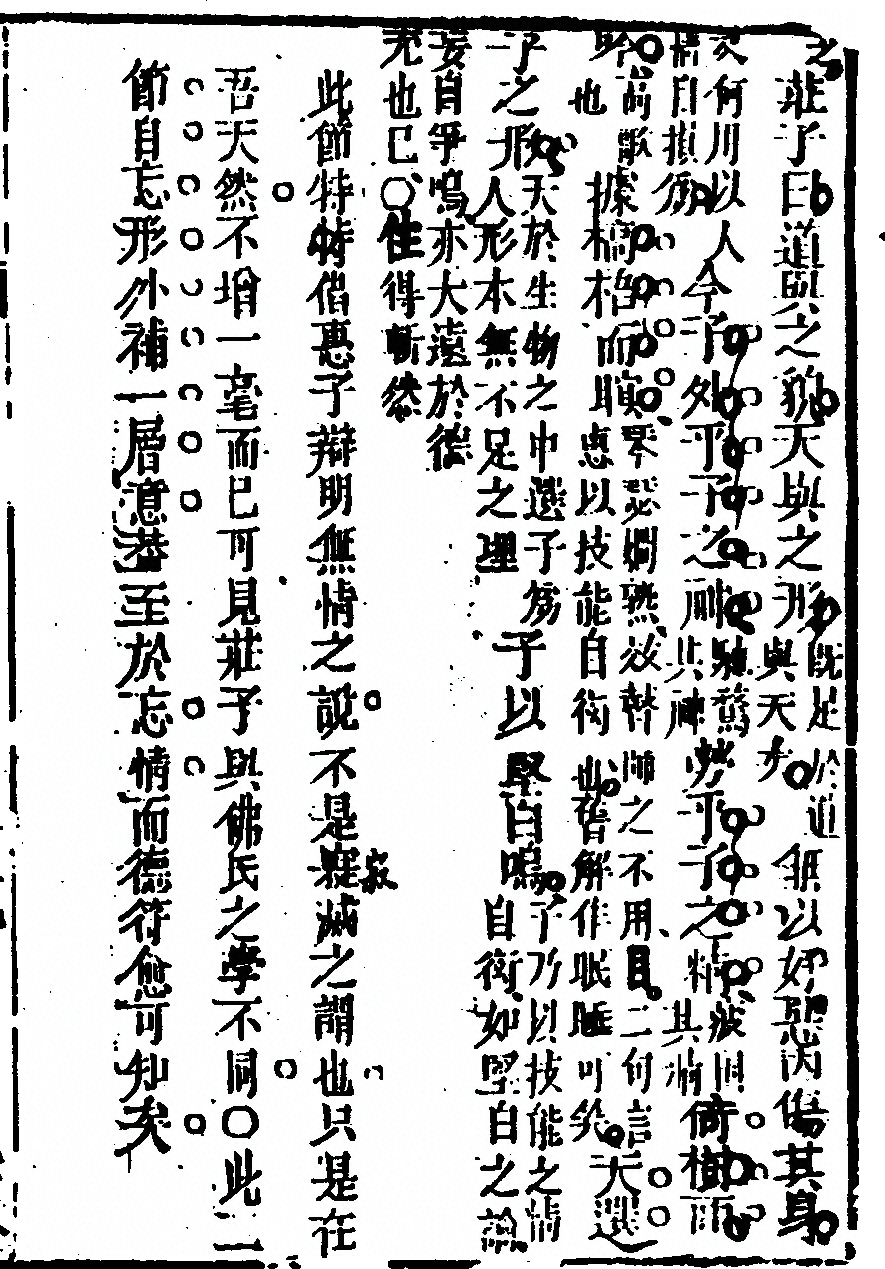 之莊子曰道與之貌天與之形既足於道與天矣無以好惡內傷其身
又何用以人情自損爲今子外乎子之神馳騖其神勞乎子之精疲困其精倚樹而
吟高歌也據槁梧而瞑琴瑟嫻熟故瞽師之不用目二句言惠以技能自衒也舊解作眠睡可笑天選
子之形天於生物之中選子爲人形本無不足之理子以堅白鳴子乃以技能之情自衒如堅白之論
妄自爭鳴亦大遠於德充也已○住得斬然
此節特特借惠子辯明無情之說不是寂滅之謂也只是在
吾天然不增一毫而已可見莊子與佛氏之學不同○此二
節自忘形外補一層意蓋至於忘情而德符愈可知矣